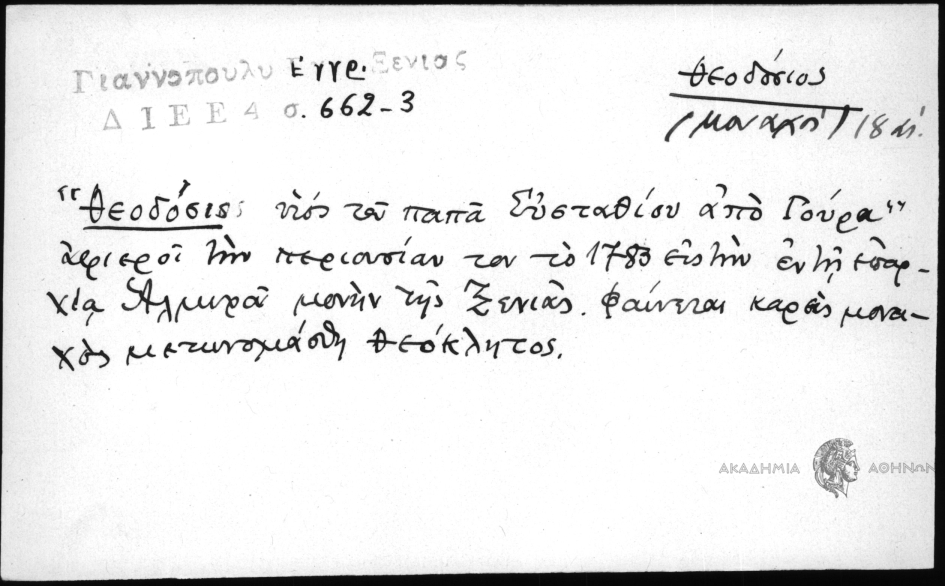 Γιαννοπουλυ Εγγρ. Ξενιας
ΔΙΕΕ 4 σ. 662-3
Θεοδόσιος
(μοναχός) 18 αἰ.
"Θεοδόσιος υἱός τοῦ παπᾶ Εὐσταθίου ἀπὸ Γούρα"
ἀφιεροῖ τὴν περιουσίαν του τὸ 1783 εἰς τὴν ἐν τῇ ἐπαρ-
χίᾳ Ἁλμυροῦ μονὴν τῆς Ξενιᾶς. Φαίνεται καρεὶς μονα-
χὸς μετωνομάσθη Θεόκλητος.
ΑΚΑΔΗΜΙΑ ΑΘΗΝΩΝ